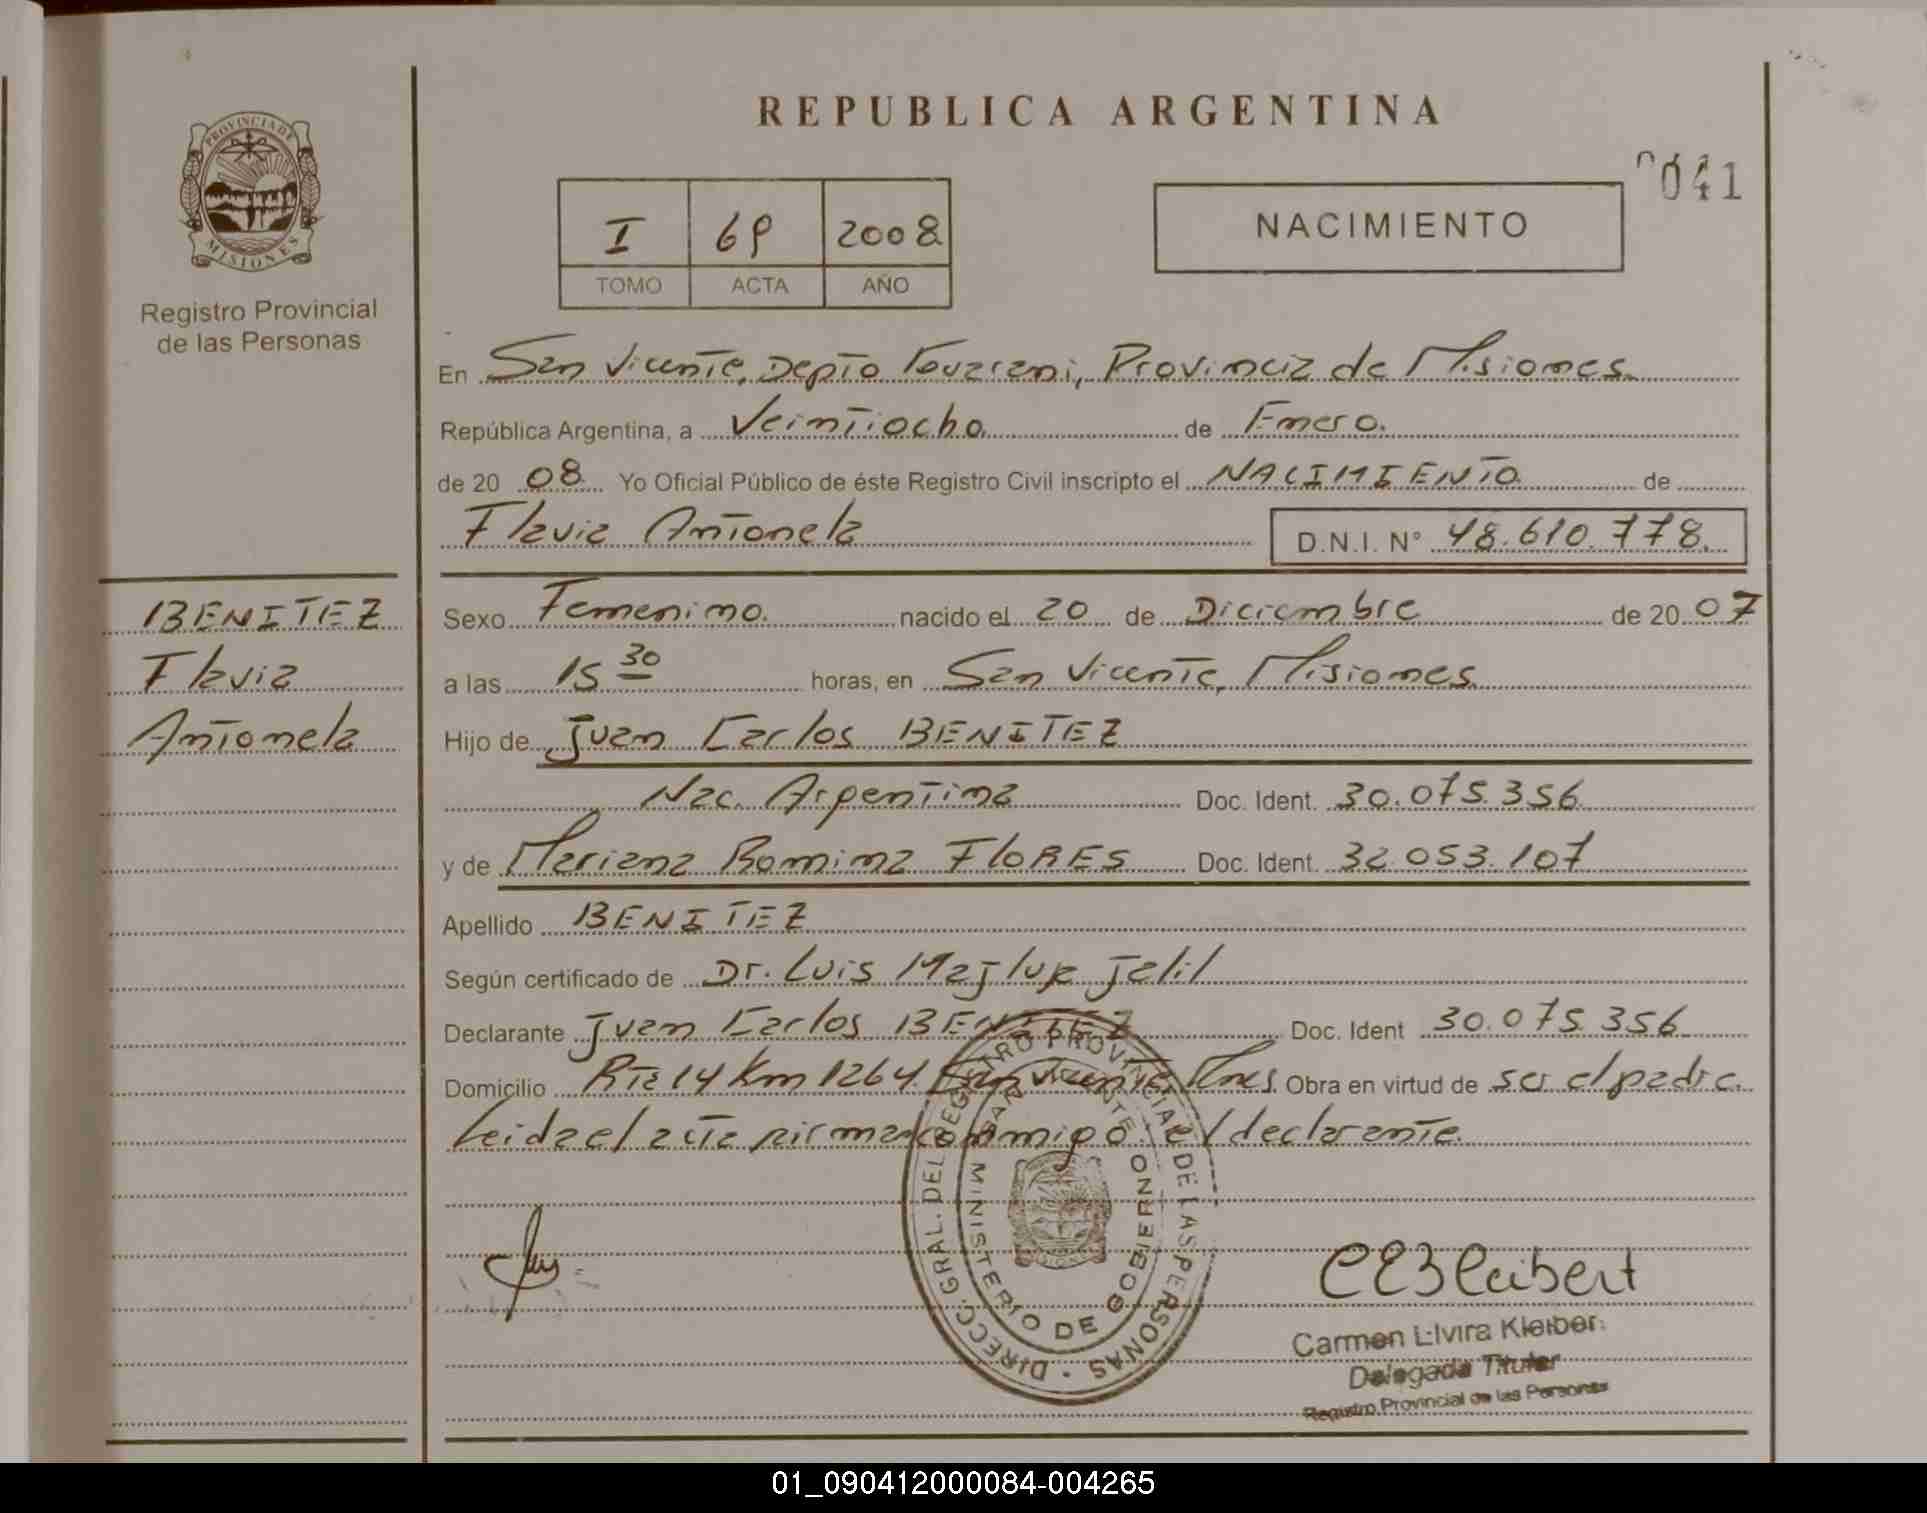 REPUBLICA ARGENTINA
PROVINCIA DE MISIONES
Registro Provincial
de las Personas
I 69 2008
TOMO ACTA AÑO
NACIMIENTO
0041
En San Vicente, Depto Guarani, Provincia de Misiones
República Argentina, a Veintiocho de Enero.
de 20 08 Yo Oficial Público de éste Registro Civil inscripto el NACIMIENTO de
Flavia Antonela D.N.I. N° 48.610.778.
BENITEZ
Flavia
Antonela
Sexo Femenino. nacido el 20 de Diciembre de 20 07
a las 15 30 horas, en San Vicente, Misiones
Hijo de Juan Carlos BENITEZ
Nac. Argentina Doc. Ident. 30.075.356
y de Mariana Romina FLORES Doc. Ident. 32.053.107
Apellido BENITEZ
Según certificado de Dr. Luis Majluf Jalil
Declarante Juan Carlos BENITEZ Doc. Ident 30.075.356
Domicilio Rta 14 Km 1264. San Vicente, Mnes. Obra en virtud de ser el padre.
Leida el acta firman conmigo el declarante.
DIRECC. GRAL. DEL REGISTRO PROVINCIAL DE LAS PERSONAS
MINISTERIO DE GOBIERNO
SAN VICENTE
CEKleibert
Carmen Elvira Kleiber
Delegada Titular
Registro Provincial de las Personas
01_090412000084-004265